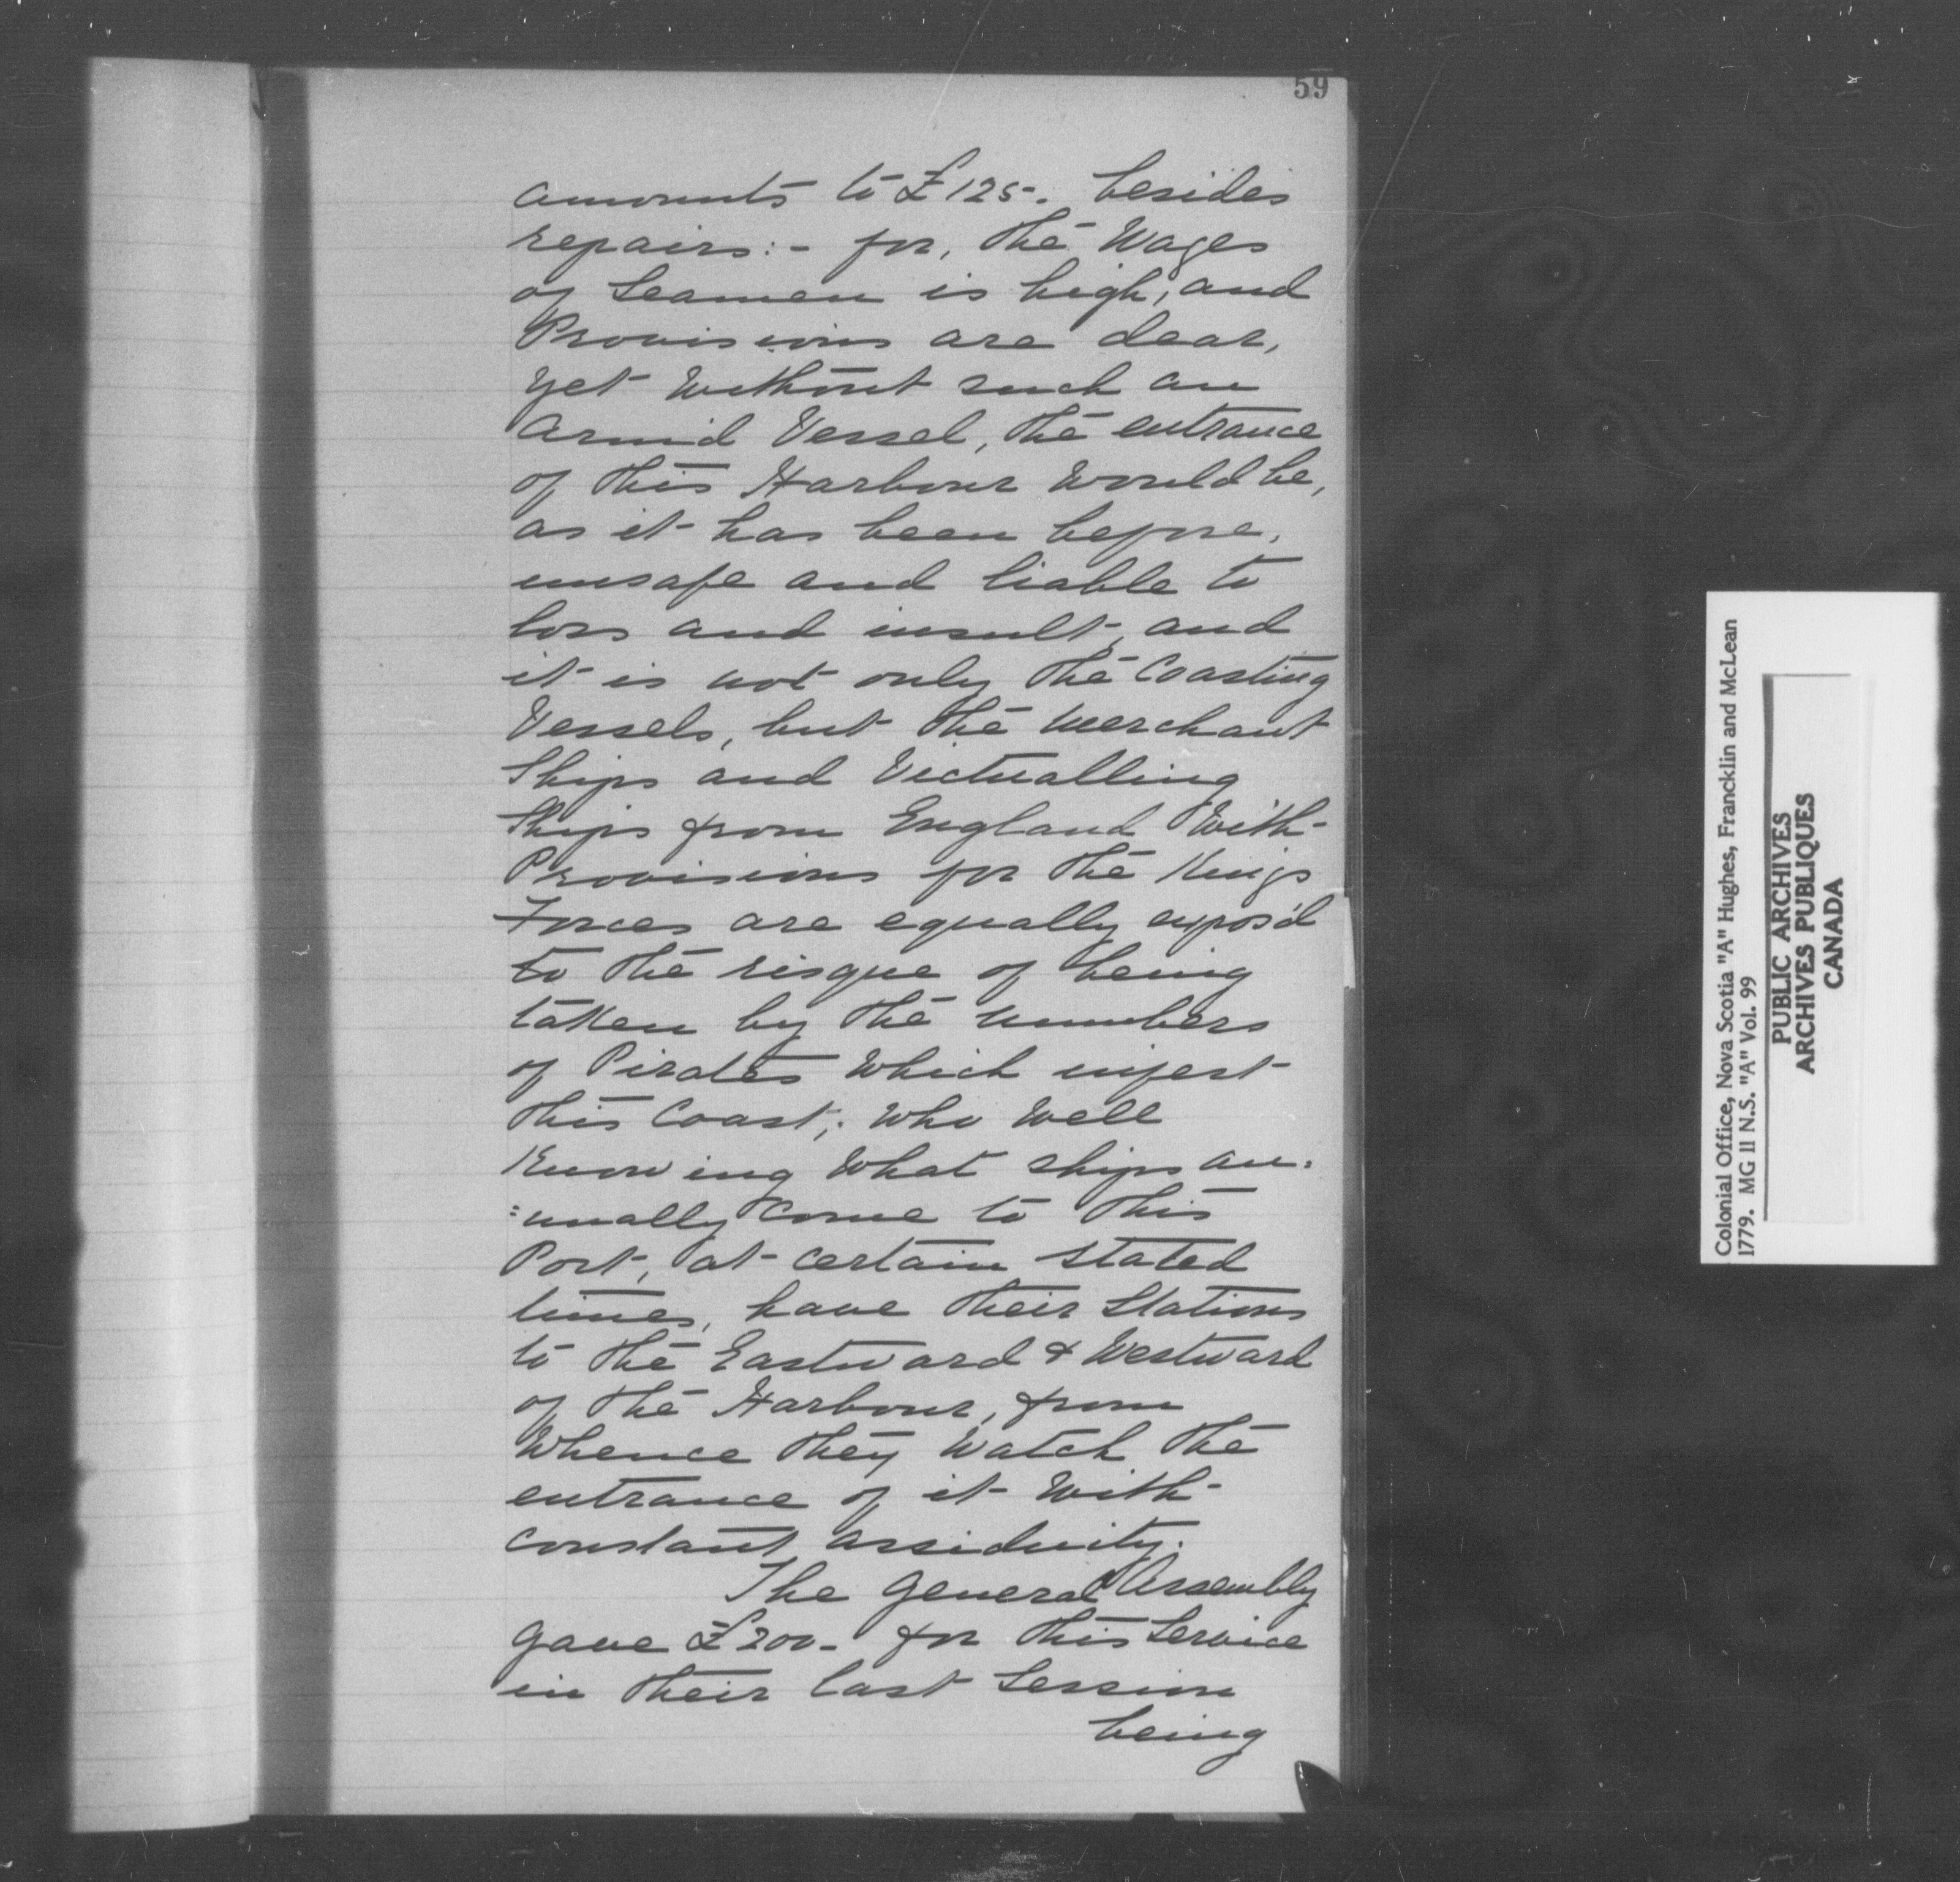 59
amounts to £125-. besides
repairs:- for, the Wages
of Seamen is high, and
Provisions are dear,
yet without such an
Armid Vessel, the entrance
of this Harbour would be,
as it has been before,
unsafe and liable to
loss and insult, and
it is not only the Coasting
Vessels, but the Merchant
Ships and Victualling
Ships from England with
Provisions for the Kings
Forces are equally expos'd
to the risque of being
taken by the numbers
of Pirates which infest
this Coast; who well
Knowing what ships an:
:nually come to this
Port, at certain stated
times, have their Stations
to the Eastward & Westward
of the Harbour, from
Whence they watch the
entrance of it with
constant assiduity.
The General Assembly
gave £200- for this Service
in their last Session
being
Colonial Office, Nova Scotia "A" Hughes, Francklin and McLean
1779. MG II N.S. "A" Vol. 99
PUBLIC ARCHIVES
ARCHIVES PUBLIQUES
CANADA